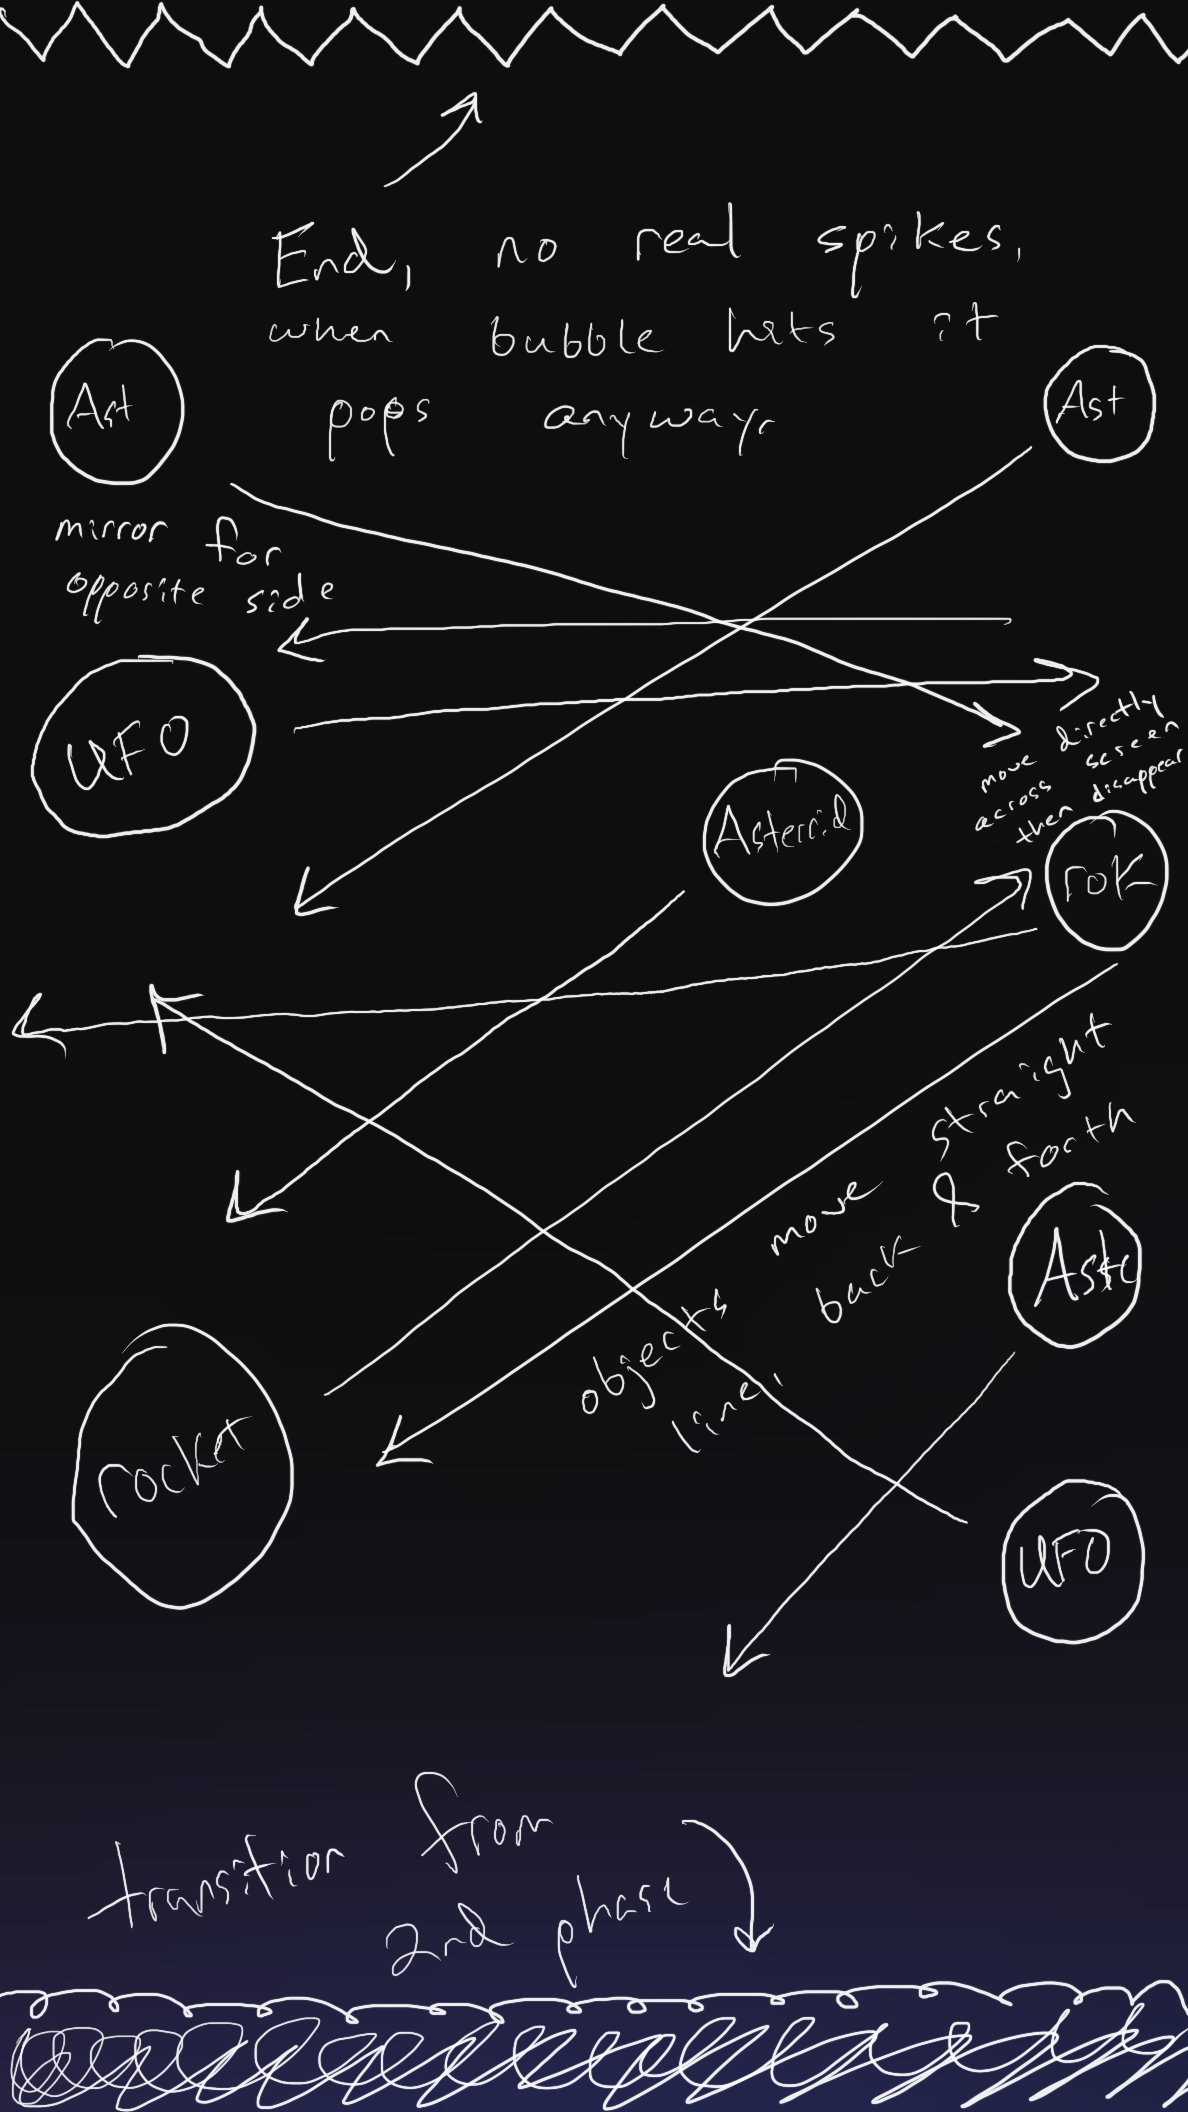 End, no real spikes,
when bubble hits it
pops anyway.
Ast
Ast
mirror for
opposite side
UFO
move directly
across screen
then disappear
Asteroid
rok
straight
move & forth
back
objects
line.
Aste
rocket
UFO
transition from
2nd phase